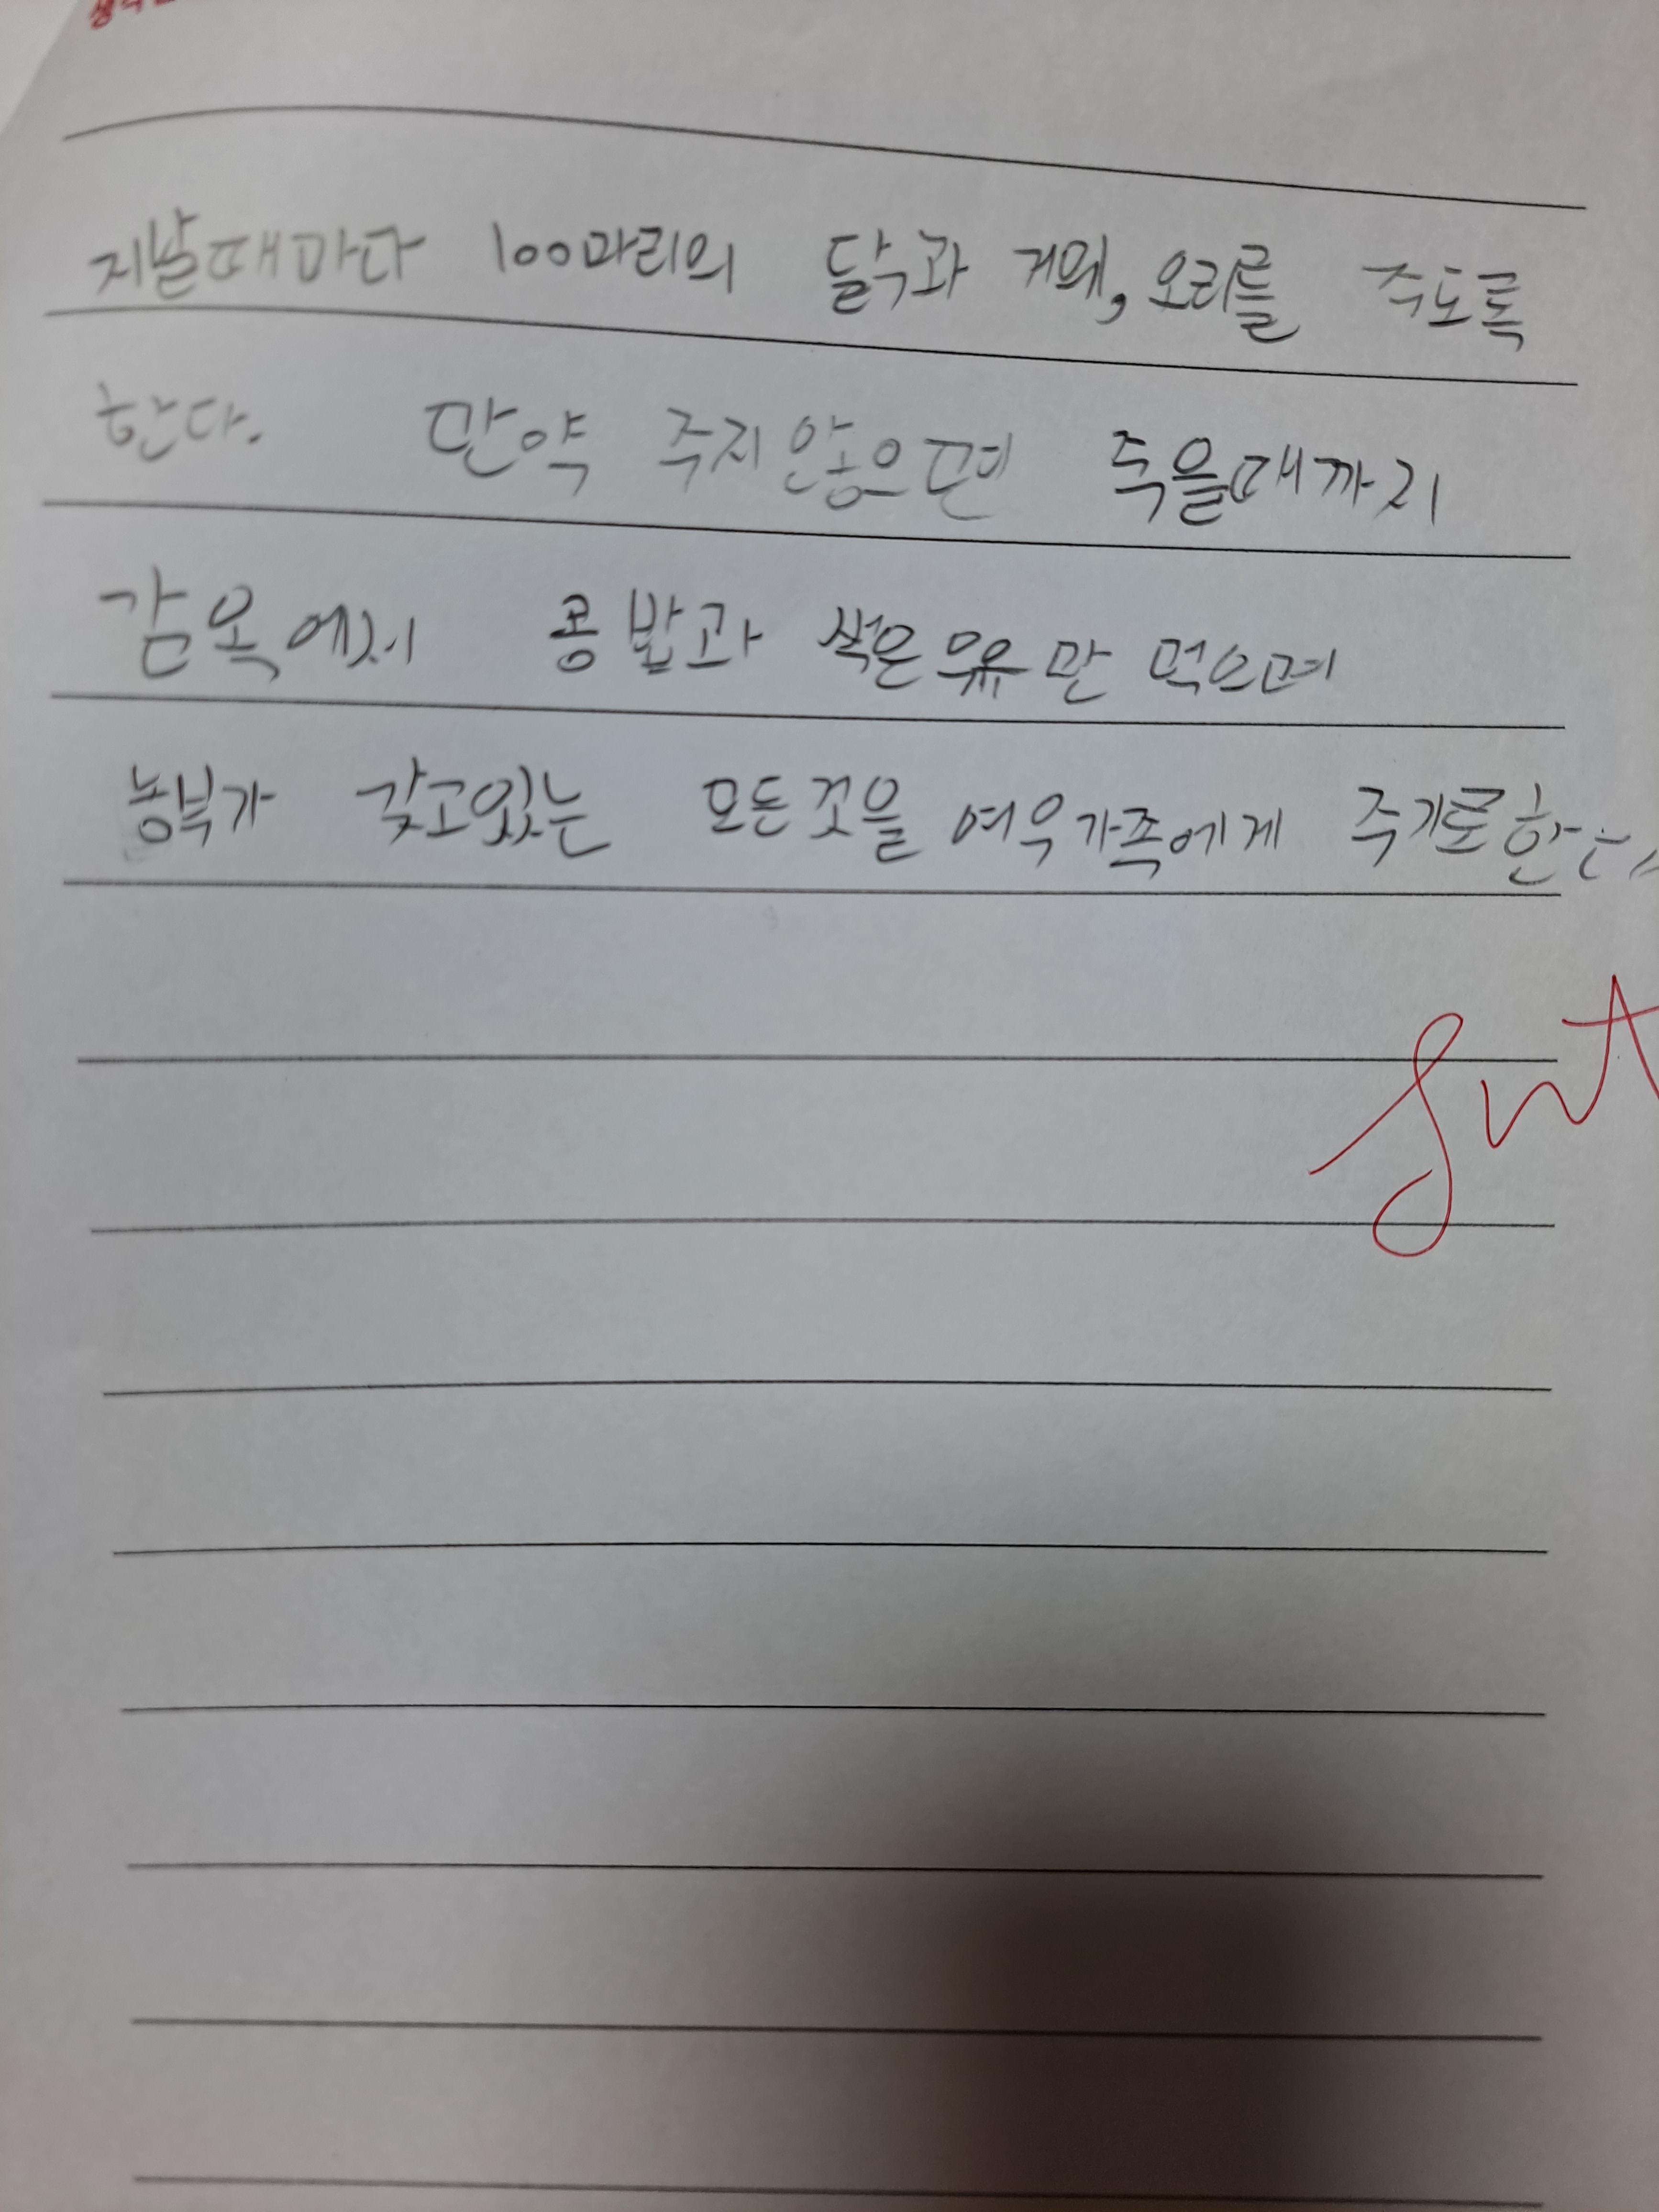 지날때마다 100마리의 닭과 거위, 오리를 주도록
한다. 만약 주지않으면 죽을때까지
감옥에서 콩밥과 썩은우유만 먹으며
농부가 갖고있는 모든것을 여우가족에게 주기로한다